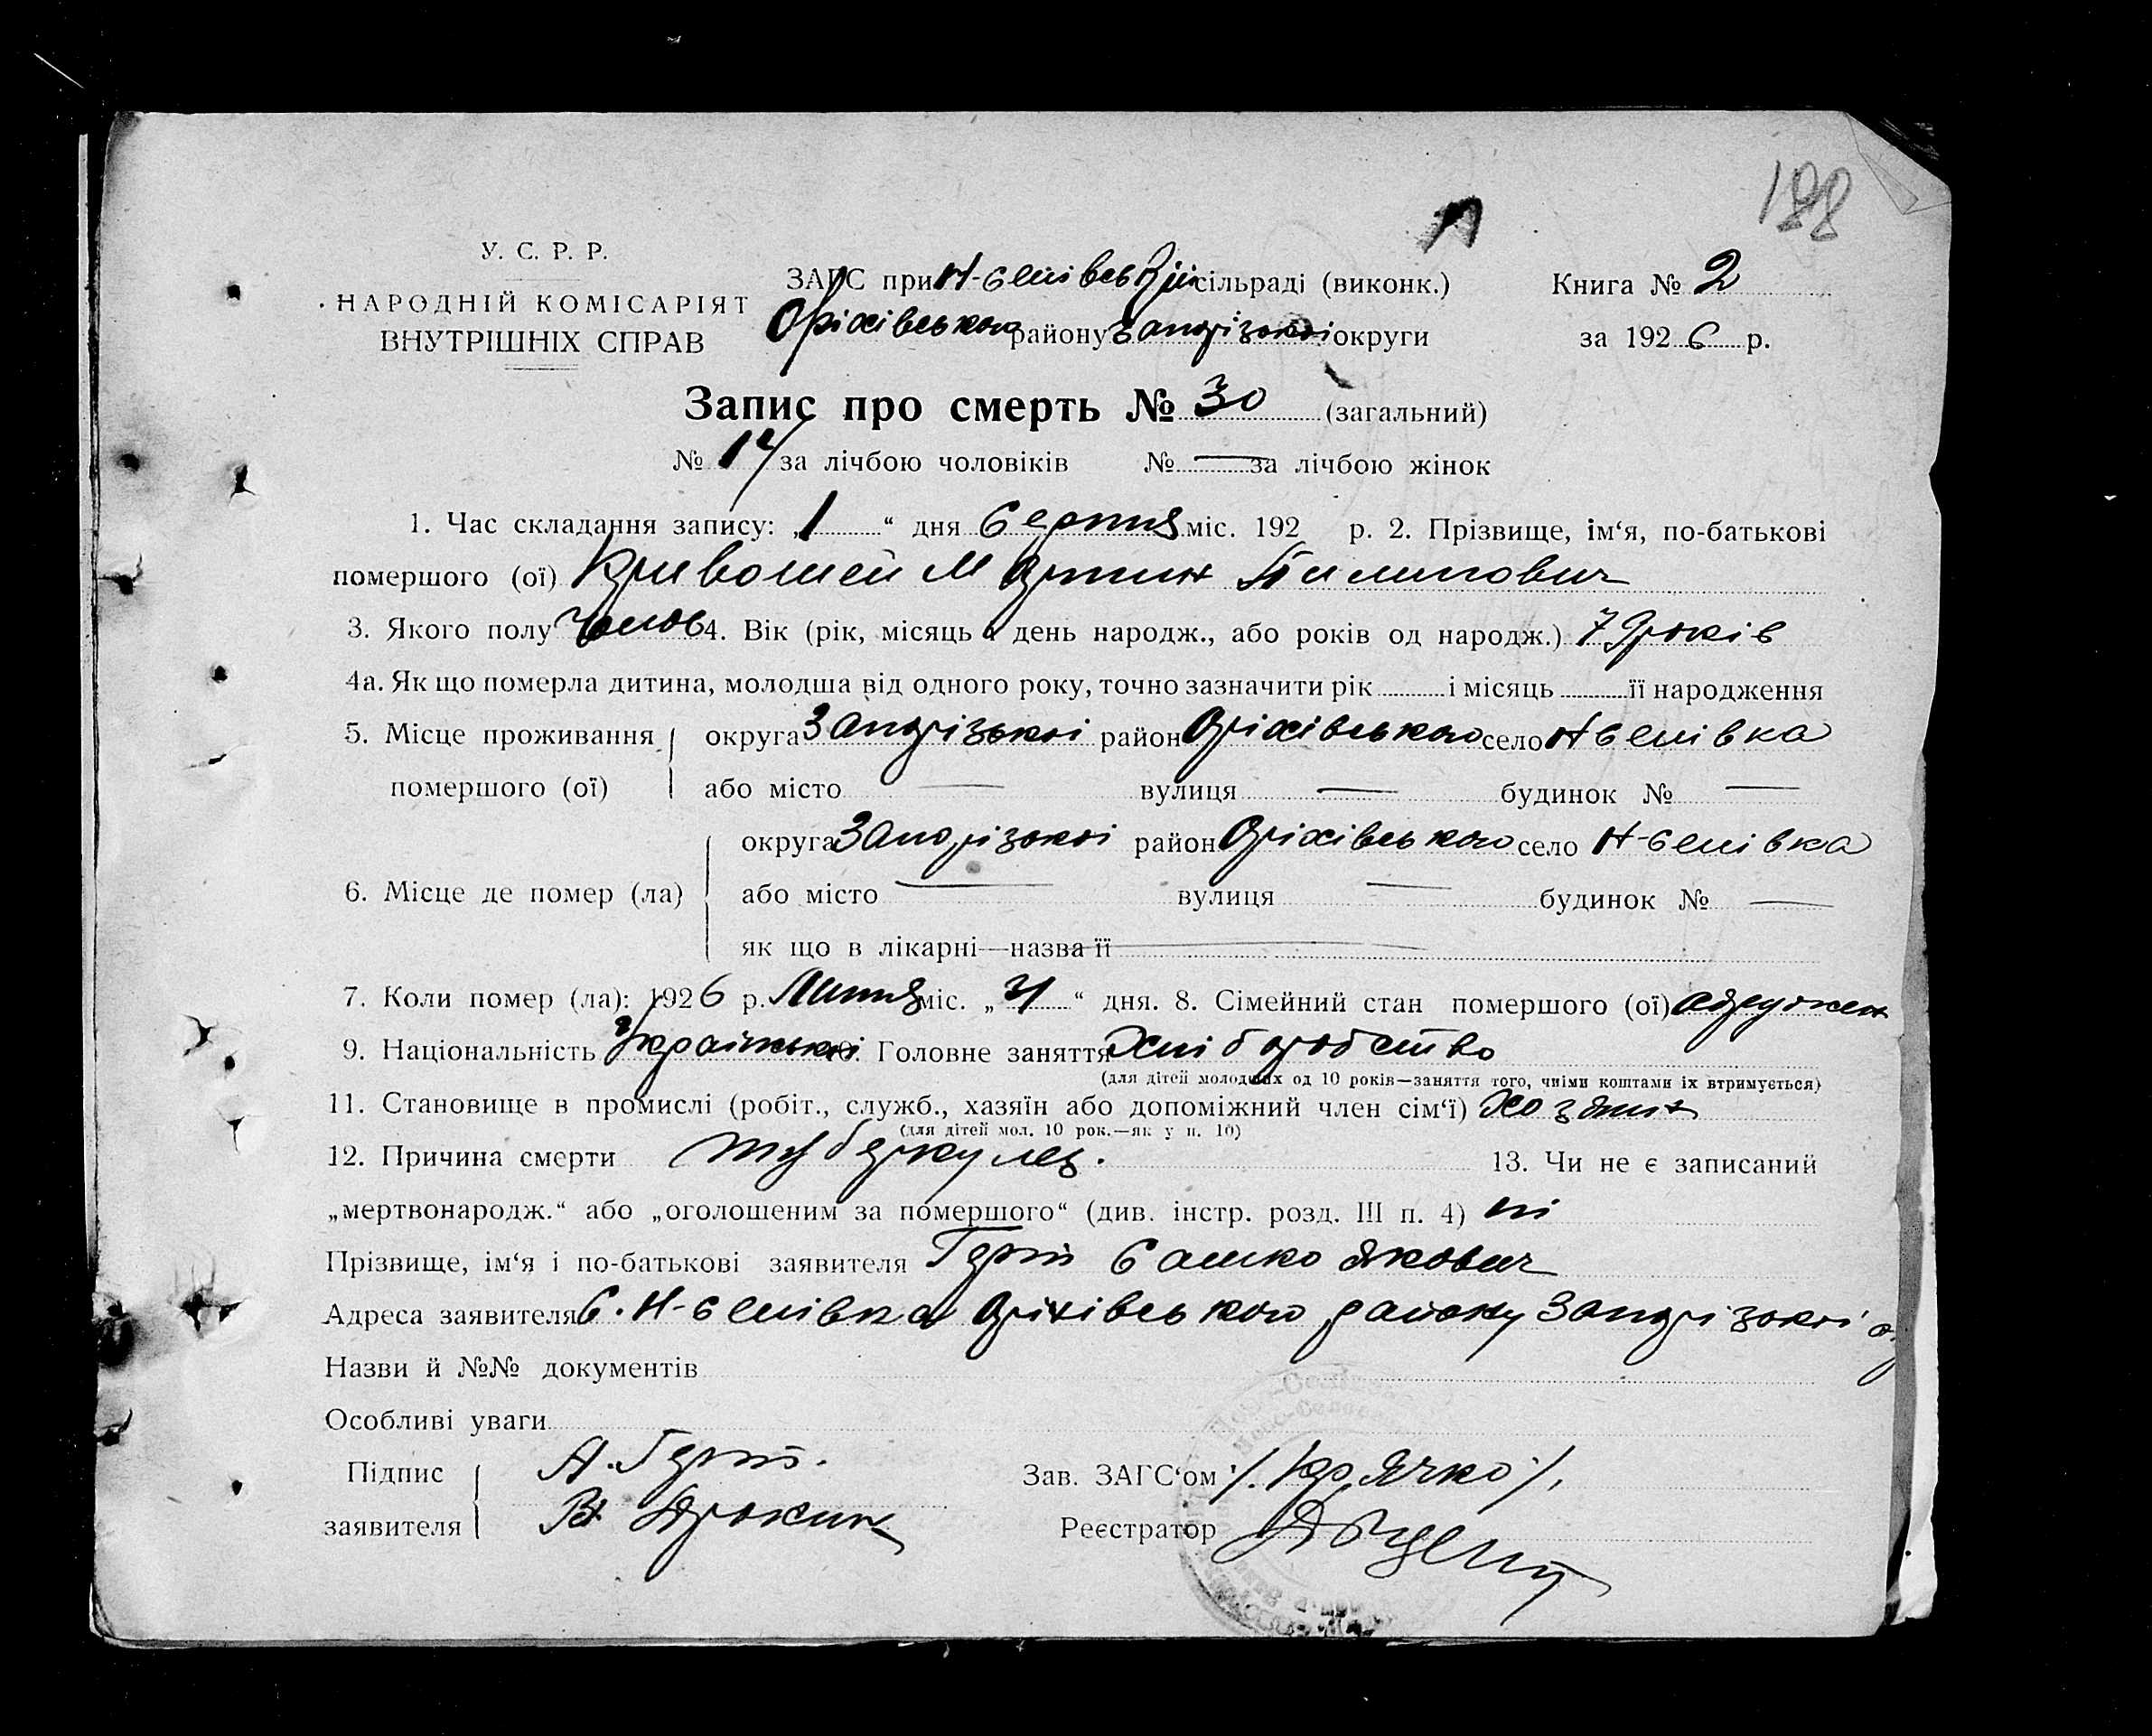 188
У. С. Р. Р.
НАРОДНІЙ КОМІСАРІЯТ
ВНУТРІШНІХ СПРАВ
ЗАГС при Н-Селівській сільраді (виконк.)
Оріхівського району Запорізької округи
Книга № 2
за 1926 р.
Запис про смерть № 30 (загальний)
№ 17 за лічбою чоловіків № — за лічбою жінок
1. Час складання запису: „1“ дня Серпня міс. 192 р. 2. Прізвище, ім‘я, по-батькові
помершого (ої) Кривошей Мартин Пилипович
3. Якого полу Чолов 4. Вік (рік, місяць і день народж., або років од народж.) 79 років
4а. Як що померла дитина, молодша від одного року, точно зазначити рік і місяць її народження
5. Місце проживання округа Запорізької район Оріхівського село Н Селівка
помершого (ої) або місто — вулиця — будинок № —
округа Запорізької район Оріхівського село Н-Селівка
6. Місце де помер (ла) або місто — вулиця — будинок № —
як що в лікарні—назва її —
7. Коли помер (ла): 1926 р. Липня міс. „31“ дня. 8. Сімейний стан помершого (ої) одружен
9. Національність Української 10. Головне заняття Хліборобство
(для дітей молодших од 10 років—заняття того, чиїми коштами їх втримується)
11. Становище в промислі (робіт., служб., хазяїн або допоміжний член сім‘ї) Хозяин
(для дітей мол. 10 рок.—як у п. 10)
12. Причина смерти туберкулез. 13. Чи не є записаний
„мертвонародж.“ або „оголошеним за помершого“ (див. інстр. розд. III п. 4) ні
Прізвище, ім‘я і по-батькові заявителя Сашко Якович
Адреса заявителя С. Н-Селівка Оріхівського району Запорізької о
Назви й №№ документів
Особливі уваги
Підпис А.
заявителя
Зав. ЗАГС‘ом
Реєстратор